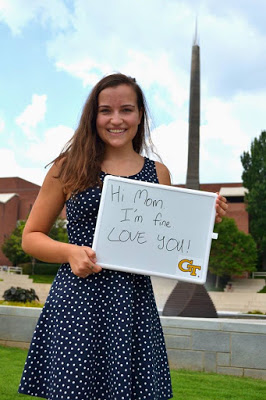 Hi Mom,
I'm fine
LOVE YOU!
GT